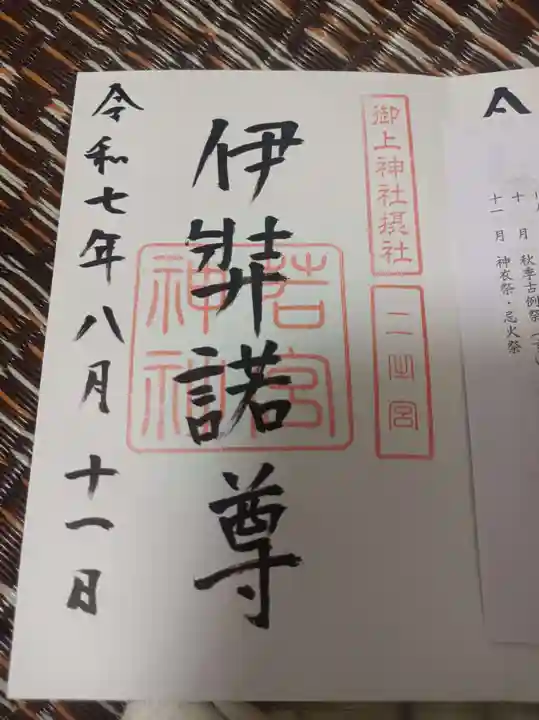 御上神社摂社
二之宮
伊弉諾尊
若宮
神社
令和七年八月十一日
十月 秋季古例祭
十一月 神衣祭・忌火祭